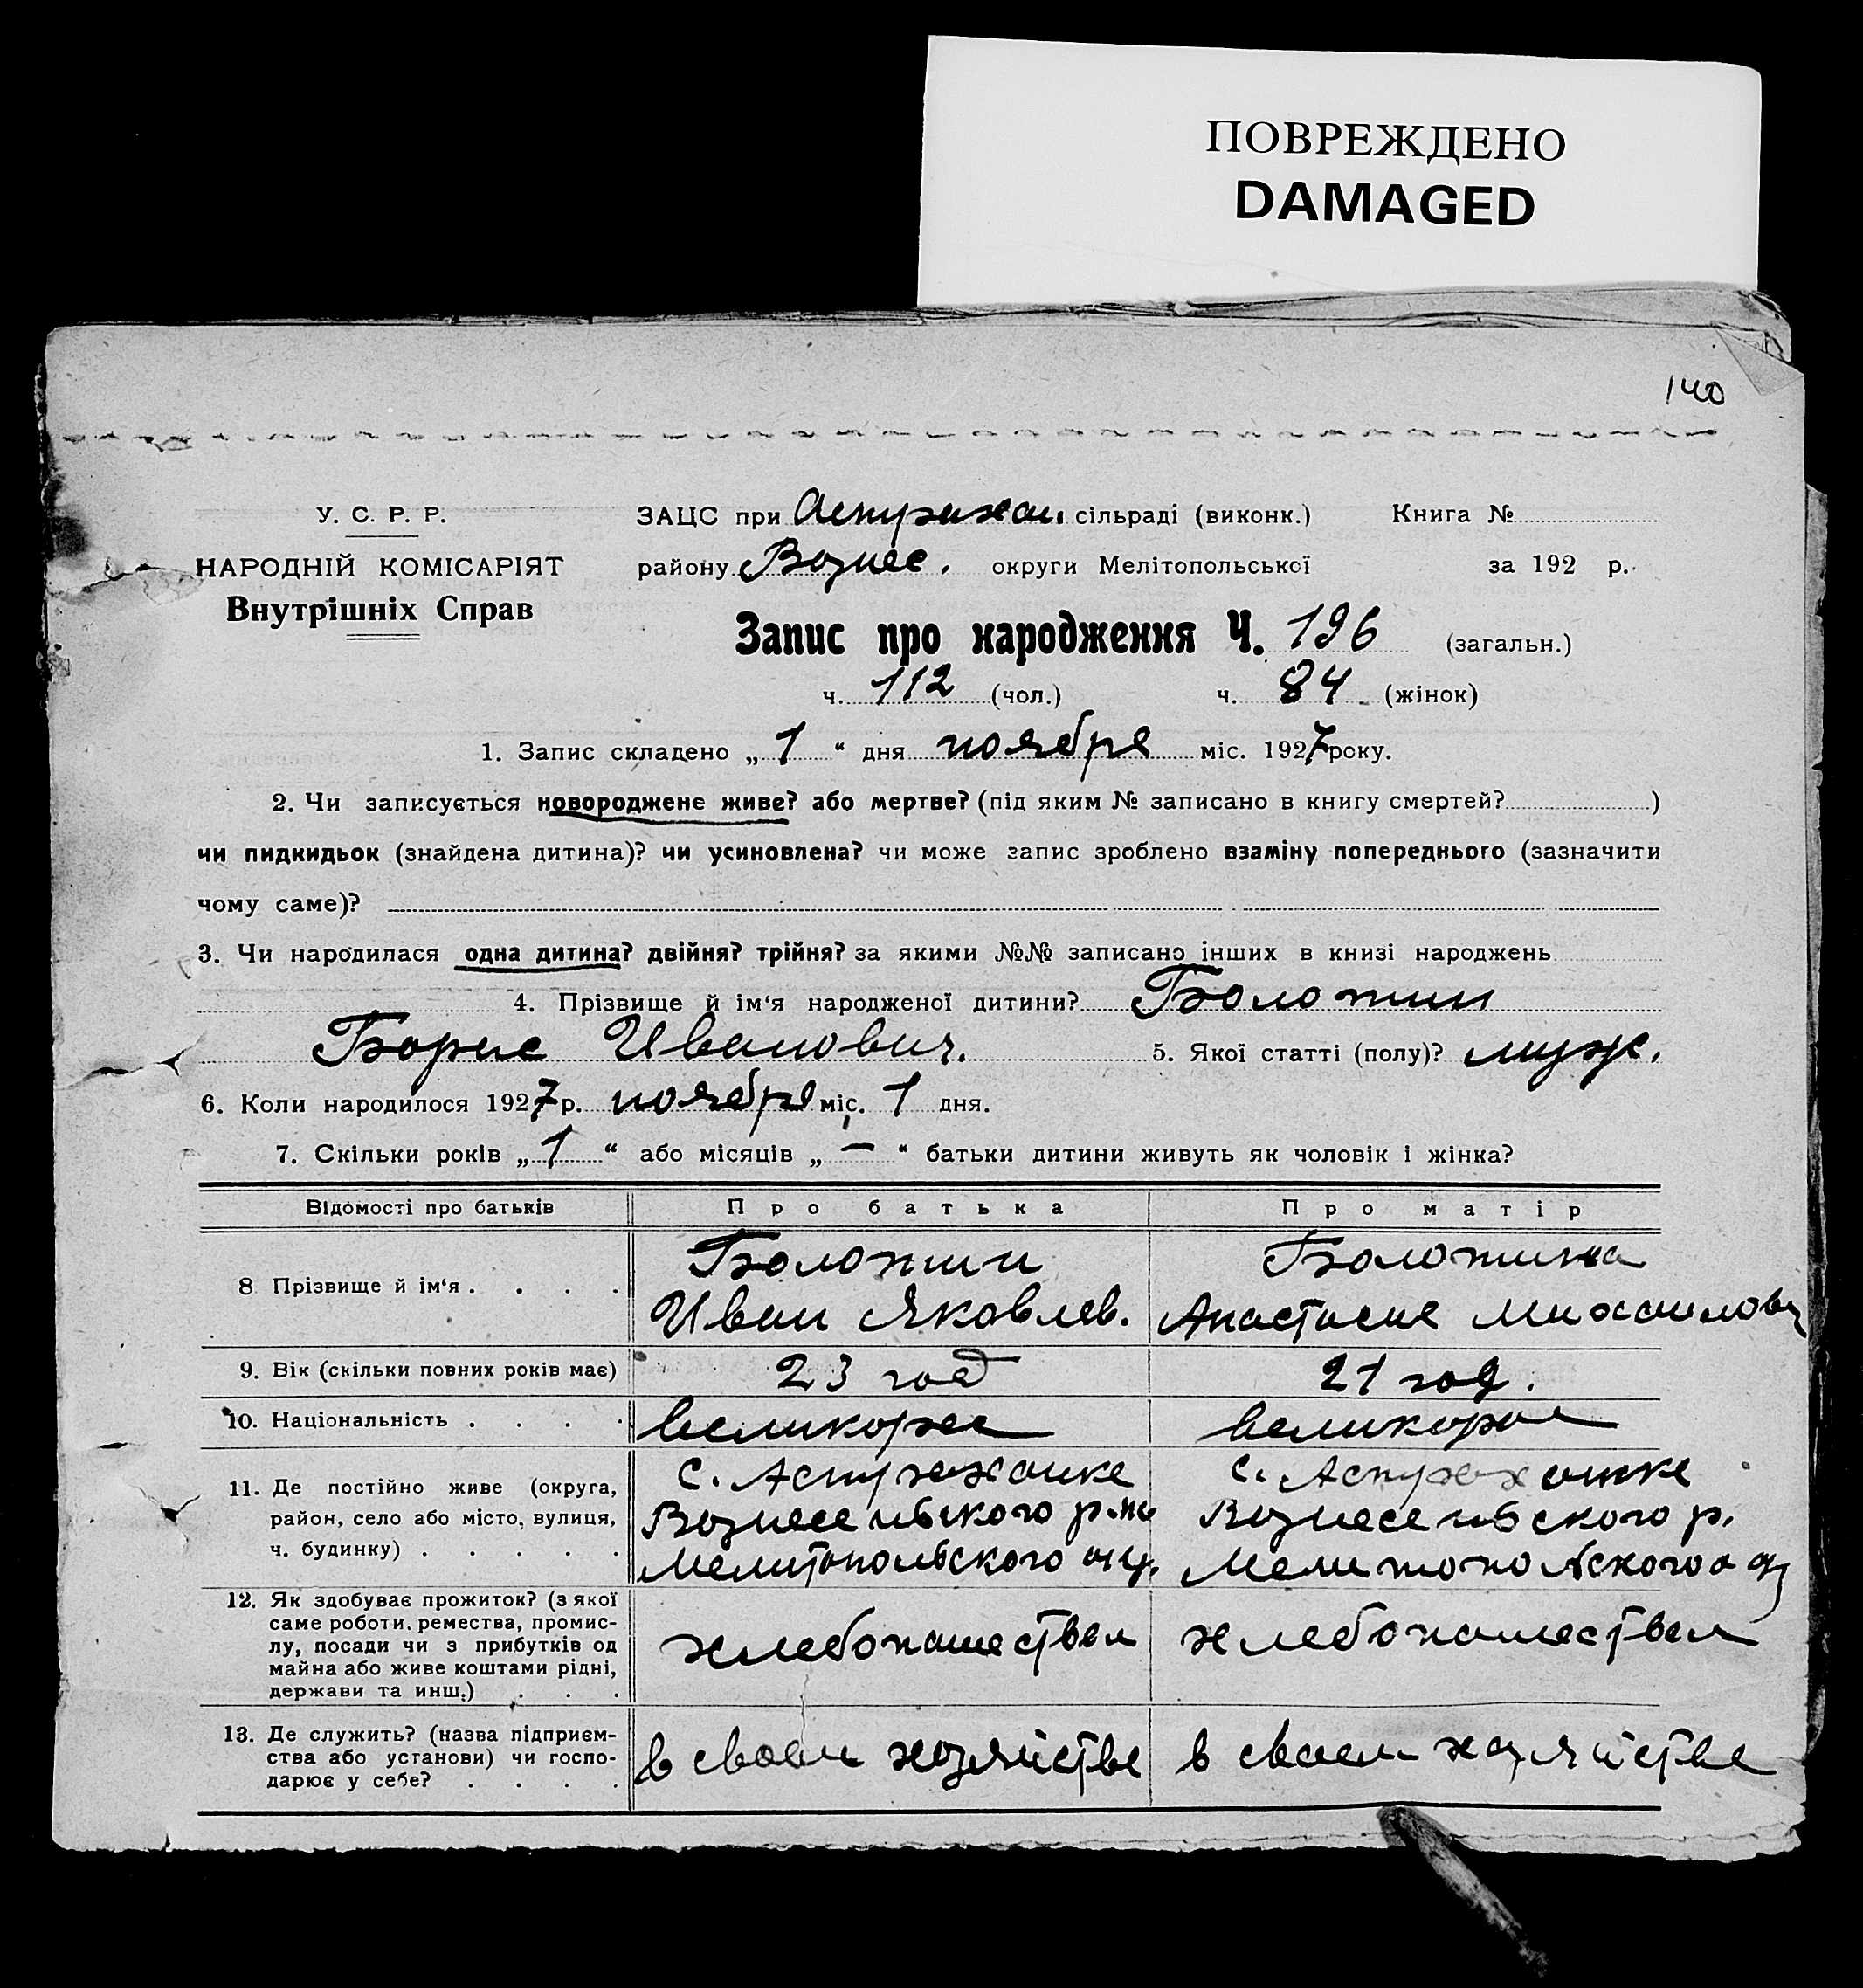 ПОВРЕЖДЕНО
DAMAGED
140
У. С. Р. Р.
НАРОДНІЙ КОМІСАРІЯТ
Внутрішніх Справ
ЗАЦС при Астрахан. сільраді (виконк.) Книга №
району Вознес. округи Мелітопольської за 192 р.
Запис про народження Ч. 196 (загальн.)
ч. 112 (чол.) ч. 84 (жінок)
1. Запис складено „ 1 “ дня ноября міс. 1927 року.
2. Чи записується новороджене живе? або мертве? (під яким № записано в книгу смертей? )
чи пидкидьок (знайдена дитина)? чи усиновлена? чи може запис зроблено взаміну попереднього (зазначити
чому саме)?
3. Чи народилася одна дитина? двійня? трійня? за якими №№ записано інших в книзі народжень
4. Прізвище й ім‘я народженої дитини? Болотин
Борис Иванович. 5. Якої статті (полу)? муж.
6. Коли народилося 1927 р. ноября міс. 1 дня.
7. Скільки років „ 1 “ або місяців „ — “ батьки дитини живуть як чоловік і жінка?
Відомості про батьків Про батька Про матір
8 Прізвище й ім‘я . . . .
Болотин
Иван Яковлев.
Болотина
Анастасия Михаилов
9. Вік (скільки повних років має) 23 год 21 год.
10. Національність . . . . великорос великорос
11. Де постійно живе (округа,
район, село або місто, вулиця,
ч. будинку) . . . . .
с. Астраханке
Вознесенського р-на
Мелитопольского окр.
с. Астраханке
Вознесеньского р.
Мелитопольского окр
12. Як здобуває прожиток? (з якої
саме роботи, ремества, промис-
лу, посади чи з прибутків од
майна або живе коштами рідні,
держави та инш.) . . .
хлебопашеством
хлебопашеством
13. Де служить? (назва підприєм-
ства або установи) чи госпо-
дарює у себе? . . . .
в своем хозяйстве
в своем хозяйстве